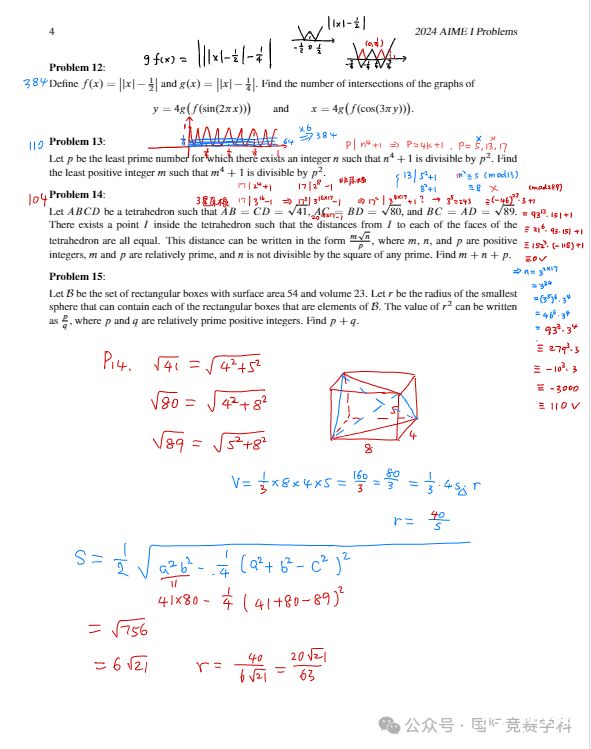 4 2024 AIME I Problems
| |x| - 1/2 |
g f(x) = ||||x| - 1/2| - 1/4|
-1/2 0 1/2
Problem 12:
384 Define f(x) = ||x| − 1/2| and g(x) = ||x| − 1/4|. Find the number of intersections of the graphs of
y = 4g(f(sin(2πx))) and x = 4g(f(cos(3πy))).
×6 → 384
Problem 13:
p | n⁴+1 ⇒ p = 4k+1, p = 5, 13, 17
110 Let p be the least prime number for which there exists an integer n such that n⁴ + 1 is divisible by p². Find
the least positive integer m such that m⁴ + 1 is divisible by p².
Problem 14:
104 Let ABCD be a tetrahedron such that AB = CD = √41, AC = BD = √80, and BC = AD = √89.
There exists a point I inside the tetrahedron such that the distances from I to each of the faces of the
tetrahedron are all equal. This distance can be written in the form m√n/p, where m, n, and p are positive
integers, m and p are relatively prime, and n is not divisible by the square of any prime. Find m + n + p.
Problem 15:
Let B be the set of rectangular boxes with surface area 54 and volume 23. Let r be the radius of the smallest
sphere that can contain each of the rectangular boxes that are elements of B. The value of r² can be written
as p/q, where p and q are relatively prime positive integers. Find p + q.
(mod 289)
≡ 0 ✓
= 93² · 3⁴
≡ 279² · 3
≡ -10² · 3
≡ -3000
≡ 110 ✓
P14. √41 = √(4²+5²)
√80 = √(4²+8²)
√89 = √(5²+8²)
5
4
8
V = 1/3 × 8 × 4 × 5 = 160/3 = 80/3 = 1/3 · 4S△ r
r = 40/S
S = 1/2 √(a²b² - 1/4 (a² + b² - c²)²)
41×80 - 1/4 (41+80-89)²
= √756
= 6√21 r = 40/6√21 = 20√21/63